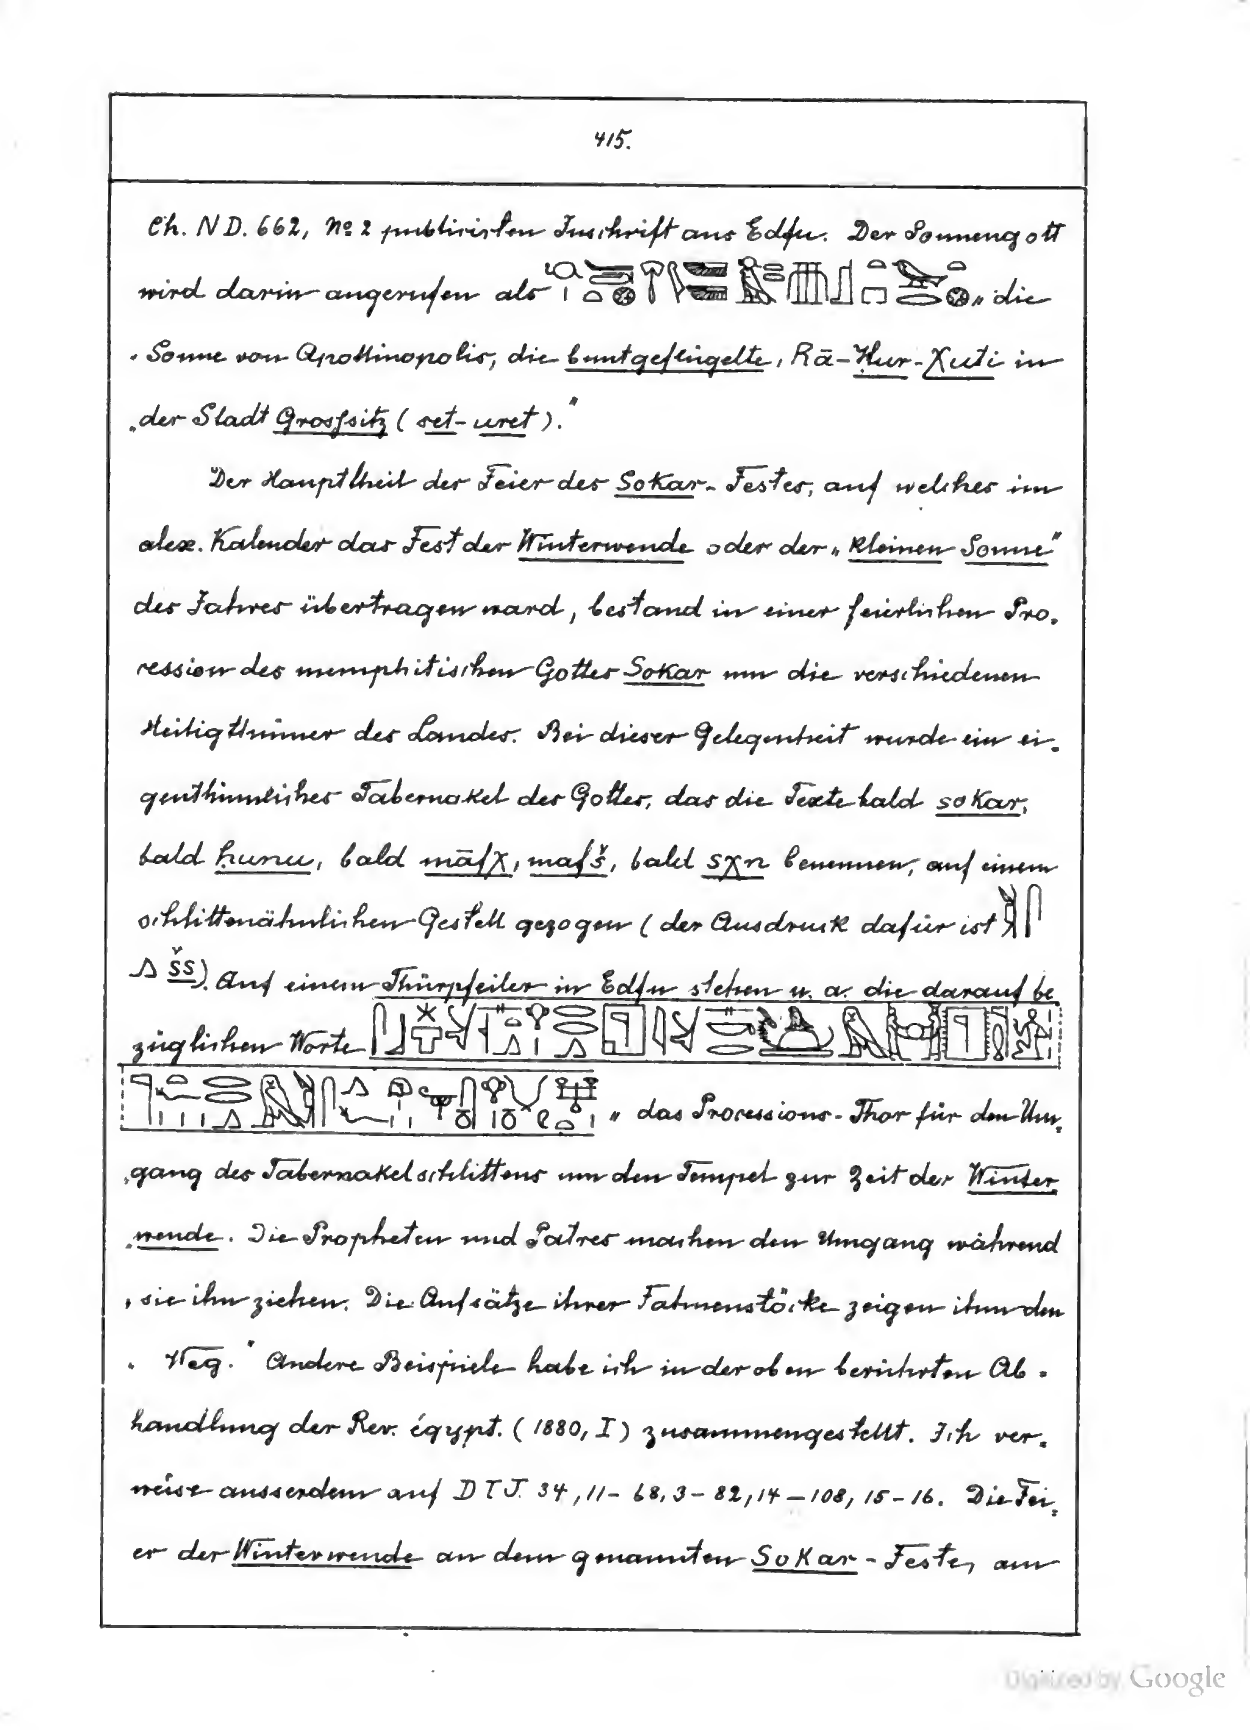 415.
Ch. ND. 662, No 2 publicirten Inschrift aus Edfu. Der Sonnengott
wird darin angerufen als „die
„Sonne von Apollinopolis, die buntgeflügelte, Rā-Ḥur-Χuti in
„der Stadt Grosssitz (set-uret)."
Der Haupttheil der Feier des Sokar-Festes, auf welches im
alex. Kalender das Fest der Winterwende oder der „kleinen Sonne"
des Jahres übertragen ward, bestand in einer feierlichen Pro-
cession des memphitischen Gottes Sokar um die verschiedenen
Heiligthümer des Landes. Bei dieser Gelegenheit wurde ein ei-
genthümliches Tabernakel des Gottes, das die Texte bald sokar,
bald ḥunu, bald māfχ, mafš, bald sχn benennen, auf einem
schlittenähnlichen Gestell gezogen (der Ausdruck dafür ist
šs). Auf einem Thürpfeiler in Edfu stehen u. a. die darauf be-
züglichen Worte
„das Processions-Thor für den Um-
„gang des Tabernakelschlittens um den Tempel zur Zeit der Winter-
„wende. Die Propheten und Patres machen den Umgang während
„sie ihn ziehen. Die Aufsätze ihrer Fahnenstöcke zeigen ihm den
„Weg." Andere Beispiele habe ich in der oben berührten Ab-
handlung der Rev. égypt. (1880, I) zusammengestellt. Ich ver-
weise ausserdem auf DTJ. 34, 11 - 68, 3 - 82, 14 - 108, 15-16. Die Fei-
er der Winterwende an dem genannten Sokar-Feste, am
Digitized by Google